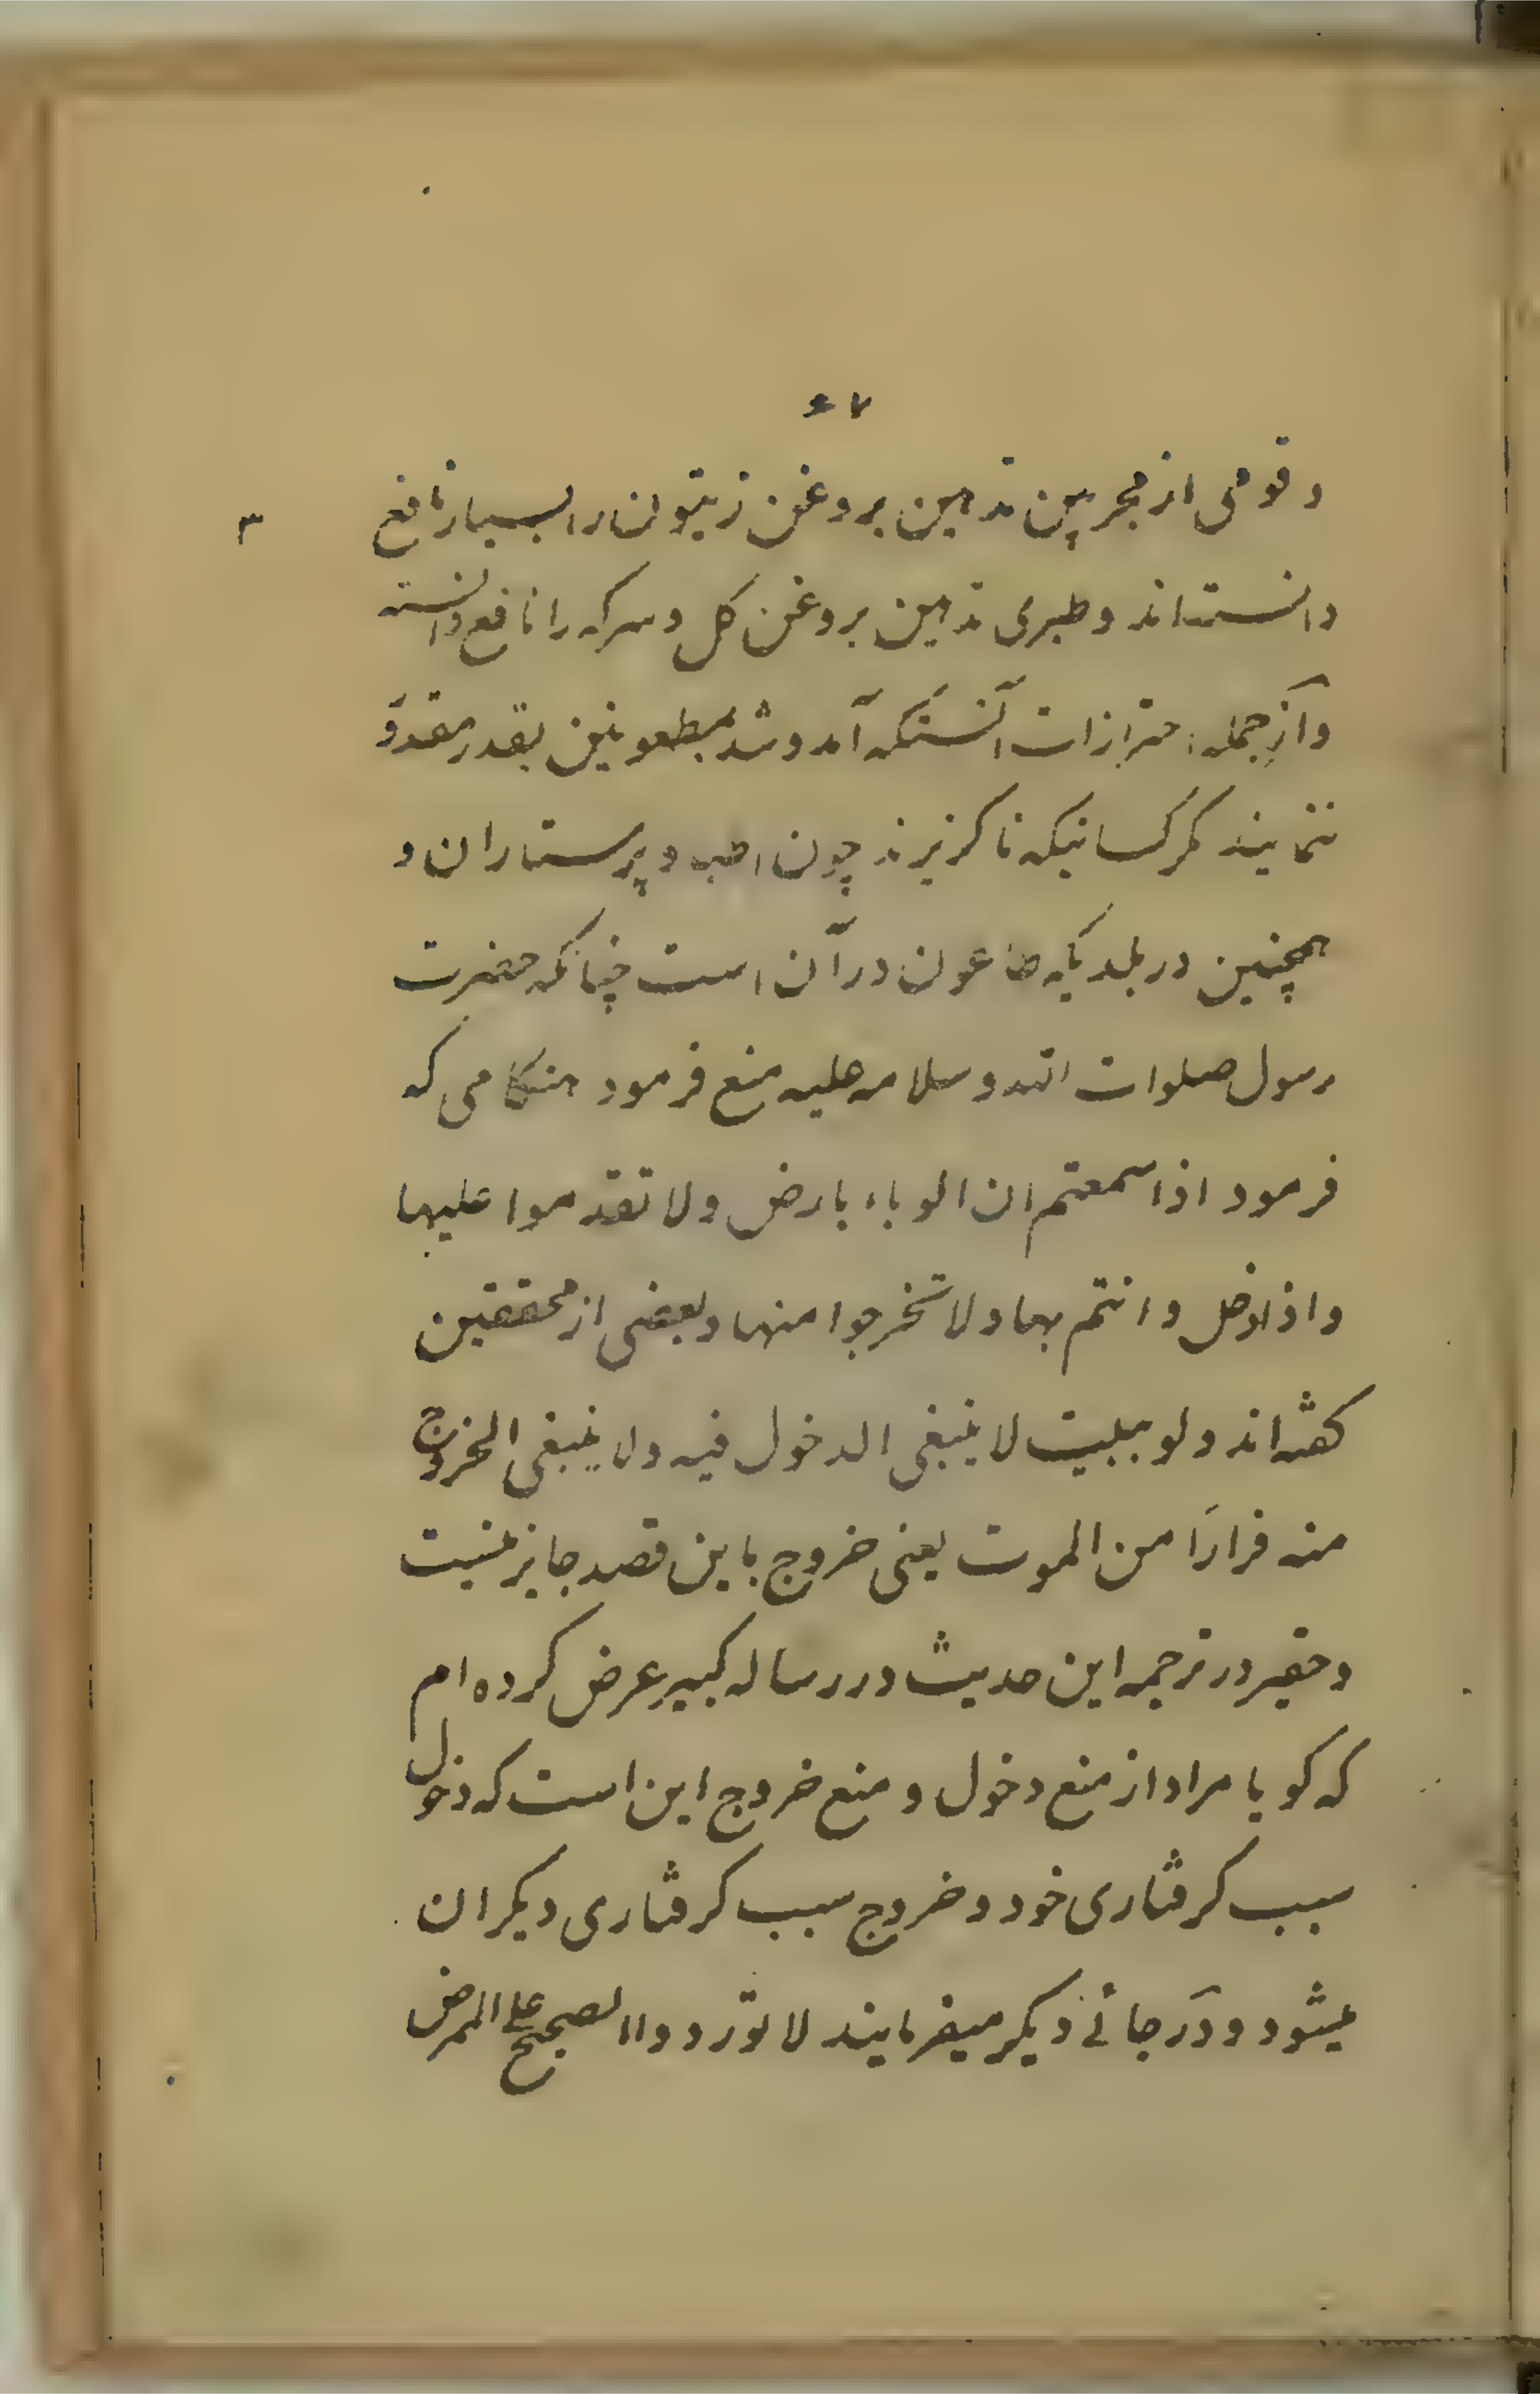 ۶۷
و قومی از مجربین تدهین بروغن زیتون را بسیار نافع
۳
دانسته‌اند و طبری تدهین بروغن کل و سرکه را نافع دانسته
و از جمله احترازات آنستکه آمد و شد بمطعونین بقدر مقدور
ننمایند مکر کسانیکه ناکزیرند چون اطبا و پرستاران و
همچنین در بلدیکه طاعون در آن است چنانکه حضرت
رسول صلوات الله و سلامه علیه منع فرمود هنکامی که
فرمود اذا سمعتم ان الوباء بارض ولا تقدموا علیها
و اذا دخل و انتم بها ولا تخرجوا منها و بعضی از محققین
کفته‌اند ولو ببیت لا ینبغی الدخول فیه ولا ینبغی الخروج
منه فرارا من الموت یعنی خروج باین قصد جایز نیست
و حقیر در ترجمه این حدیث در رساله کبیر عرض کرده‌ام
که کویا مراد از منع دخول و منع خروج این است که دخول
سبب کرفتاری خود و خروج سبب کرفتاری دیکران
میشود و در جائے دیکر میفرمایند لا توردوا الصحیح علی الممرض